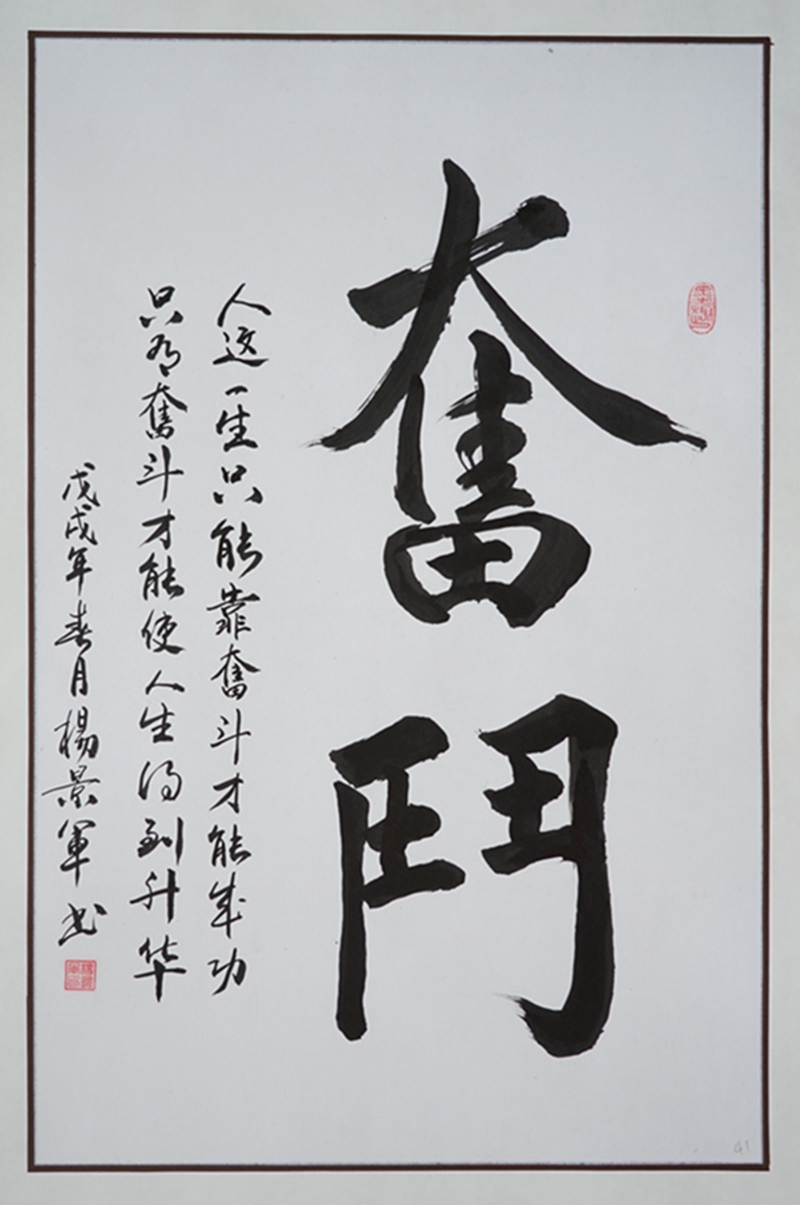 奮鬥
人这一生只能靠奮斗才能成功
只有奮斗才能使人生得到升华
戊戌年春月楊景軍书
41